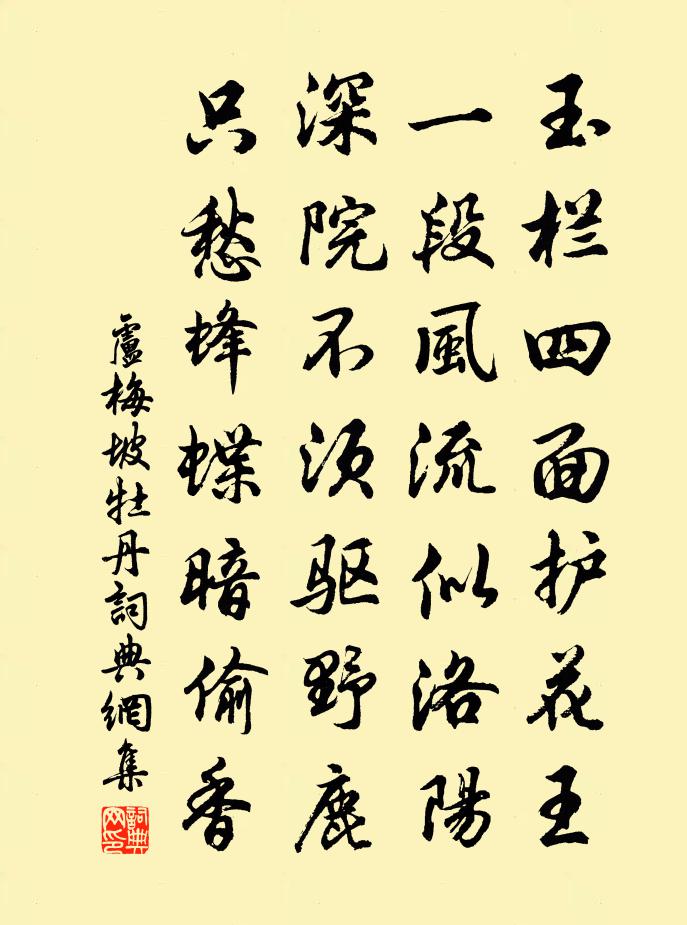 玉栏四面护花王
一段風流似洛陽
深院不须驱野鹿
只愁蜂蝶暗偷香
盧梅坡牡丹詞典網集
詞典
网印